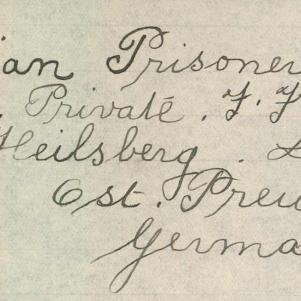 ian Prisoner
Private. F. F
Heilsberg.
Ost. Preu
Germa